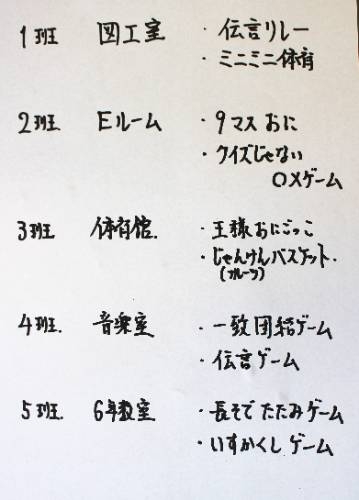 1班 図工室 ・伝言リレー
・ミニミニ体育
2班 Eルーム ・9マスおに
・クイズじゃない
○×ゲーム
3班 体育館 ・王様おにごっこ
・じゃんけんバスケット
(フルーツ)
4班 音楽室 ・一致団結ゲーム
・伝言ゲーム
5班 6年教室 ・長そでたたみゲーム
・いすかくしゲーム